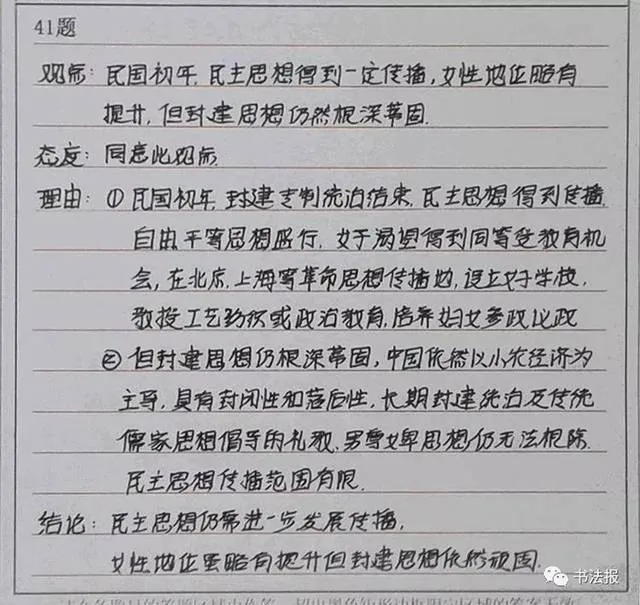 41题
观点：民国初年，民主思想得到一定传播，女性地位略有
提升，但封建思想仍然根深蒂固.
态度：同意此观点
理由：①民国初年，封建专制统治结束，民主思想得到传播，
自由平等思想盛行，女子渴望得到同等受教育机
会，在北京，上海等革命思想传播地，设立女子学校，
教授工艺纺织或政治教育，培养妇女参政议政
②但封建思想仍根深蒂固，中国依然以小农经济为
主导，具有封闭性和落后性，长期封建统治及传统
儒家思想倡导的礼教，男尊女卑思想仍无法根除.
民主思想传播范围有限.
结论：民主思想仍需进一步发展传播，
女性地位虽略有提升但封建思想依然顽固.
书法报